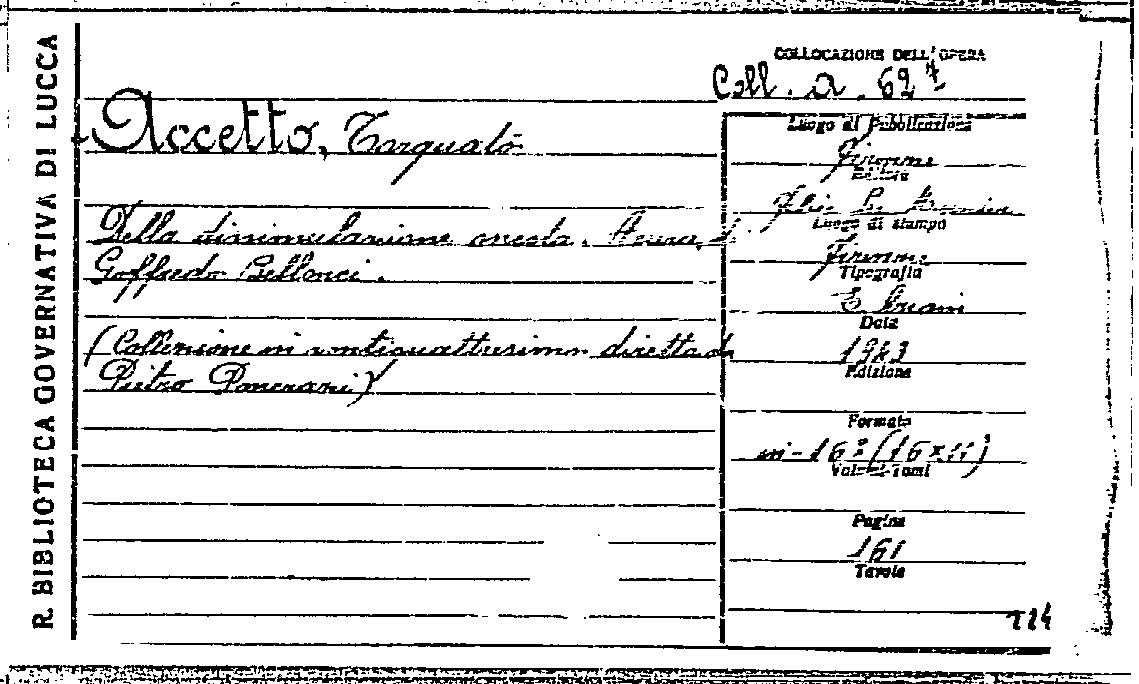 R. BIBLIOTECA GOVERNATIVA DI LUCCA
COLLOCAZIONE DELL'OPERA
Coll. a. 627
Accetto, Torquato
Della dissimulazione onesta. A cura di
Goffredo Bellonci.
(Collezione in ventiquattresimo diretta da
Pietro Pancrazi)
Luogo di Pubblicazione
Firenze
Editore
Felice Le Monnier
Luogo di stampa
Firenze
Tipografia
E. Ariani
Data
1943
Edizione
Formato
in-16º (16x11)
Volumi-Tomi
Pagine
161
Tavole
124